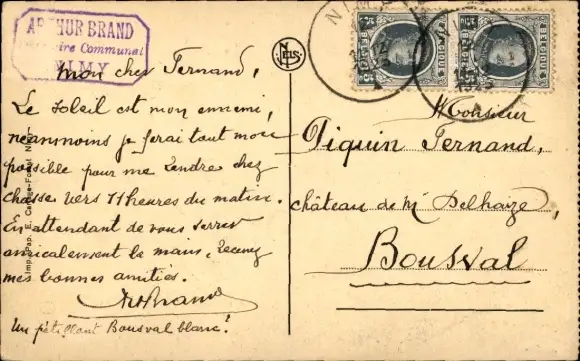 ARTHUR BRAND
Communal
NIMY
Mon cher Fernand,
Le soleil est mon ennemi,
néanmoins je ferai tout mon
possible pour me rendre chez
chasse vers 11 heures du matin.
En attendant de vous serrer
amicalement la main, recevez
mes bonnes amitiés.
ABrand
Un pétillant Bousval blanc!
NELS
Imp. Pap. E.
NIMY
BELGIQUE
BELGIQUE
Monsieur
Piquin Fernand,
château de Mr Delhaize,
Bousval